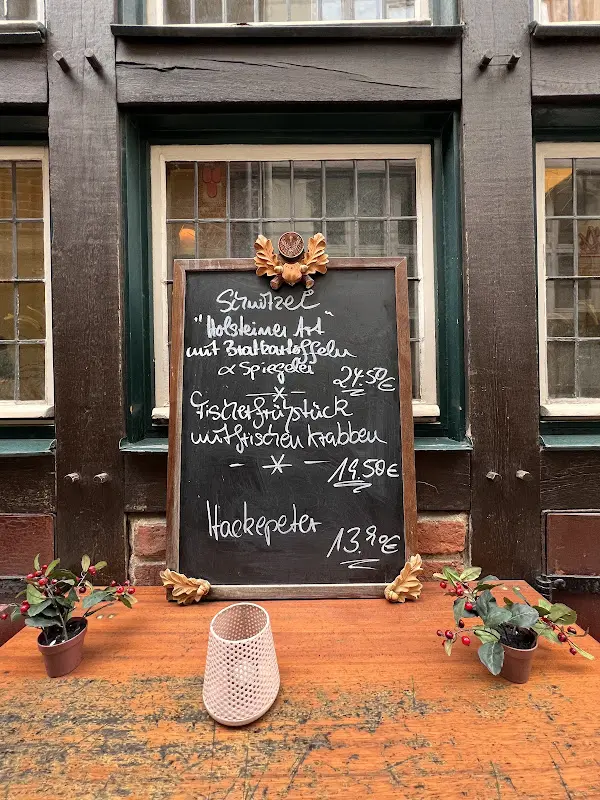 Schnitzel
"Holsteiner Art"
mit Bratkartoffeln
& Spiegelei
24.50€
Fischerfrühstück
mit frischen Krabben
19.50€
Hackepeter
13.90€